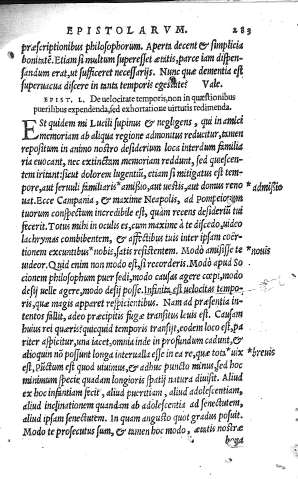 EPISTOLARVM. 283
præscriptionibus philosophorum. Aperta decent & simplicia
bonitatē. Etiam si multum superesset ætatis, parce iam dispen-
sandum erat, ut sufficeret necessarijs. Nunc quæ dementia est
superuacua discere in tanta temporis egestate? Vale.
EPIST. L. De uelocitate temporis, non in quæstionibus
puerilibus expendenda, sed exhortatione uirtutis redimenda.
EST quidem mi Lucili supinus & negligens, qui in amici
memoriam ab aliqua regione admonitus reducitur, tamen
repositum in animo nostro desiderium loca interdum familia
ria euocant, nec extinctam memoriam reddunt, sed quiescen-
tem irritant: sicut dolorem lugentiū, etiam si mitigatus est tem-
pore, aut seruuli familiaris *amissio, aut uestis, aut domus reno *admissio
uat. Ecce Campania, & maxime Neapolis, ad Pompeiorum
tuorum conspectum incredibile est, quàm recens desideriū tui
fecerit. Totus mihi in oculis es, cum maxime à te discedo, uideo
lachrymas combibentem, & affectibus tuis inter ipsam coër-
tionem excuntibus *nobis, satis resistentem. Modò amisisse te *nouis
uideor. Quid enim non modo est, si recorderis. Modò apud So
tionem philosophum puer sedi, modo causas agere cœpi, modo
desij uelle agere, modo desij posse. Infinita est uelocitas tempo-
ris, quæ magis apparet respicientibus. Nam ad præsentia in-
tentos fallit, adeo præcipitis fugæ transitus leuis est. Causam
huius rei quæris? quicquid temporis transijt, eodem loco est, pa
riter aspicitur, una iacet, omnia inde in profundum cadunt, &
alioquin nō possunt longa interualla esse in ea re, quæ tota *uix *breuis
est. Pūctum est quod uiuimus, & adhuc puncto minus, sed hoc
minimum specie quadam longioris spatij natura diuisit. Aliud
ex hoc infantiam fecit, aliud pueritiam, aliud adolescentiam,
aliud inclinationem quandam ab adolescentia ad senectutem,
aliud ipsam senectutem. In quàm angusto quot gradus posuit.
Modo te prosecutus sum, & tamen hoc modo, ætatis nostræ
bona